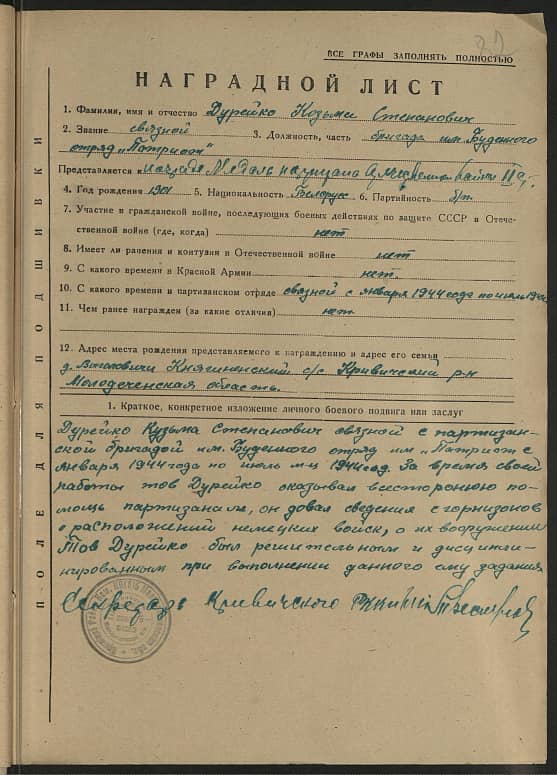 82
ВСЕ ГРАФЫ ЗАПОЛНЯТЬ ПОЛНОСТЬЮ
НАГРАДНОЙ ЛИСТ
1. Фамилия, имя и отчество Дурейко Козьма Степанович
2. Звание связной 3. Должность, часть бригада им. Буденного
отряд „Патриот“
Представляется к награде Медаль партизана Отечественной войны II ст.
4. Год рождения 1901 5. Национальность Белорус 6. Партийность б/п.
7. Участие в гражданской войне, последующих боевых действиях по защите СССР и Отече-
ственной войне (где, когда) нет
8. Имеет ли ранения и контузии в Отечественной войне нет
9. С какого времени в Красной Армии нет.
10. С какого времени в партизанском отряде связной с января 1944 года по июль 1944
11. Чем ранее награжден (за какие отличия) нет
12. Адрес места рождения представляемого к награждению и адрес его семьи
д. Княгининский с/с Кривический р-н
Молодеченская область.
1. Краткое, конкретное изложение личного боевого подвига или заслуг
Дурейко Кузьма Степанович связной с партизан-
ской бригадой им. Буденного отряд им „Патриот с
января 1944 года по июль м-ц 1944 год. За время своей
работы тов Дурейко оказывал всесторонюю по-
мощь партизанам, он довал сведения с горнизонов
о расположений немецких войск, о их вооружении
Тов Дурейко был решительным и дисципли-
нированным при выполнении данного ему задания
Секретарь Кривичского РК
ПОЛЕ ДЛЯ ПОДШИВКИ